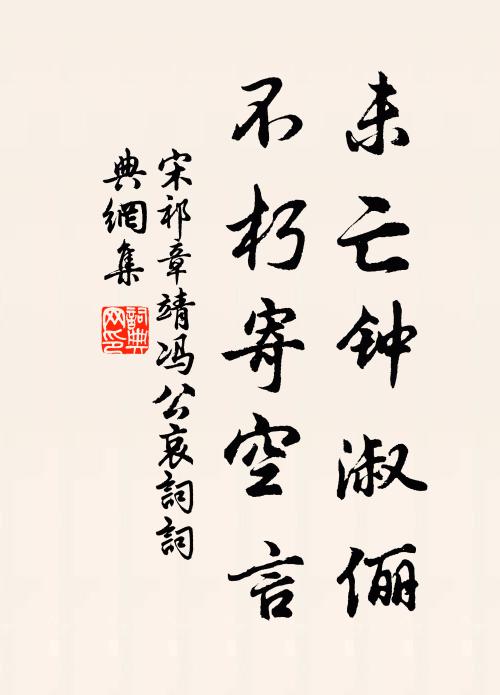 未亡钟淑俪
不朽寄空言
宋祁章靖冯公哀詞詞
典網集
詞典网印